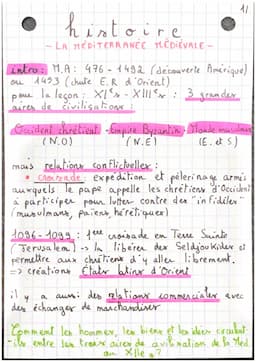 1/
histoire
- LA MÉDITERRANÉE MÉDIÉVALE -
intro: M.A: 476 - 1492 (découverte Amérique)
ou 1453 (chute E.R d'Orient)
pour la leçon: XIe s - XIIIe s : 3 grandes
aires de civilisations :
Occident chrétien - Empire Byzantin - Monde musulman
(N.O) (N.E) (E. et S)
mais relations conflictuelles :
• croisade: expédition et pèlerinage armés
auxquels le pape appelle les chrétiens d'Occident
à participer pour lutter contre des "infidèles"
(musulmans, païens, hérétiques)
1096-1099 : 1ère croisade en Terre Sainte
(Jerusalem) -> la libérer des Seldjoukides et
permettre aux chrétiens d'y aller librement.
=> créations États latins d'Orient
il y a aussi des relations commerciales avec
des échanges de marchandises
Comment les hommes, les biens et les idées circulent-
ils entre les trois aires de civilisation de la Méd.
au XIIe s ?